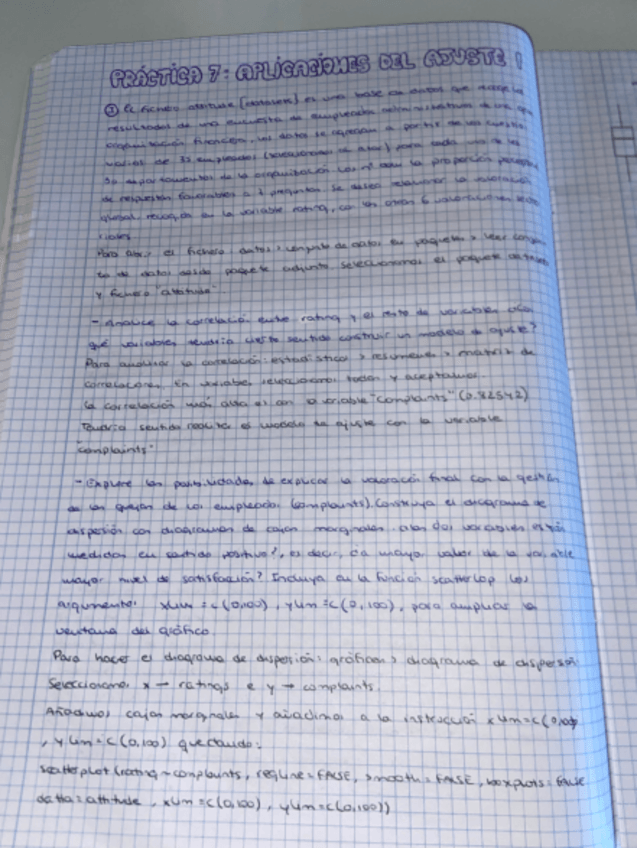 PRÁCTICA 7: APLICACIONES DEL AJUSTE I
① El fichero attitude (datasets) es una base de datos que recoge la
resultados de una encuesta de empleados administrativos de una gran
organización financiera. Los datos se agregan a partir de los cuestio
narios de 35 empleados (seleccionados al azar) para cada uno de los
30 departamentos de la organización. Los nº dan la proporción
de respuestas favorables a 7 preguntas. Se desea relacionar la valoración
global, recogida en la variable rating, con las otras 6 valoraciones
ciales.
Para abrir el fichero datos > conjunto de datos en paquetes > leer conjun
to de datos desde paquete adjunto, seleccionamos el paquete datasets
y fichero "attitude"
- Analice la correlación entre rating y el resto de variables ¿Con
qué variables tendría cierto sentido construir un modelo de ajuste?
Para analizar la correlación: estadísticos > resúmenes > matriz de
correlaciones. En variables seleccionamos todas y aceptamos.
La correlación más alta es con la variable "complaints" (0.82542)
Tendría sentido realizar el modelo de ajuste con la variable
"complaints"
- Explore las posibilidades de explicar la valoración final con la gestión
de las quejas de los empleados (complaints). Construya el diagrama de
dispersión con diagramas de cajas marginales. ¿Las dos variables están
medidas en sentido positivo?, es decir, ¿a mayor valor de la variable
mayor nivel de satisfacción? Incluya en la función scatterlop los
argumentos xlim=c(0,100), ylim=c(0,100), para ampliar la
ventana del gráfico.
Para hacer el diagrama de dispersión: gráficas > diagrama de dispersión
Seleccionamos x → ratings e y → complaints.
Añadimos cajas marginales y añadimos a la instrucción xlim=c(0,100)
, ylim=c(0,100) quedando:
scatterplot(rating~complaints, regLine=FALSE, smooth=FALSE, boxplots=FALSE
data=attitude, xlim=c(0,100), ylim=c(0,100))